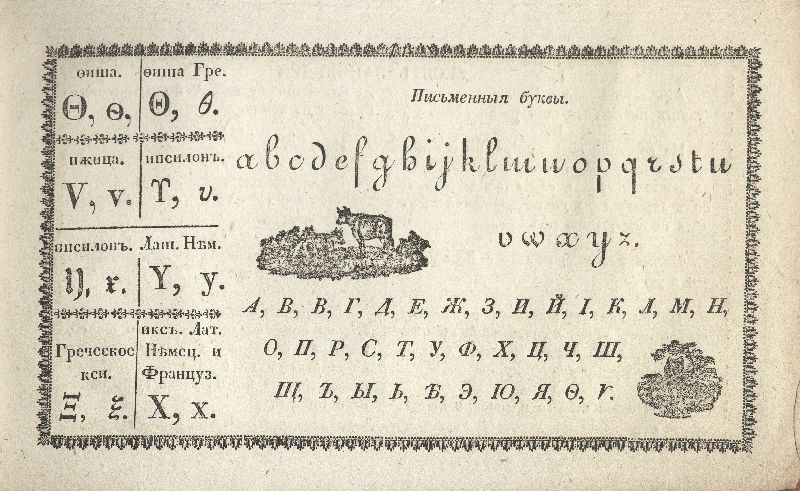 ѳита.
Ѳ, ѳ,
ѳита Гре.
Θ, θ.
ижица.
Ѵ, ѵ.
ипсилонъ.
ϒ, υ.
ипсилонъ. Лат. Нѣм.
Y, y.
Греческое
кси.
Ξ, ξ.
иксъ. Лат.
Нѣмец. и
Француз.
X, x.
Письменныя буквы.
a b c d e f g h i j k l m n o p q r s t u
v w x y z.
А, В, В, Г, Д, Е, Ж, З, И, Й, І, К, Л, М, Н,
О, П, Р, С, Т, У, Ф, Х, Ц, Ч, Ш,
Щ, Ъ, Ы, Ь, Ѣ, Э, Ю, Я, Ѳ, Ѵ.